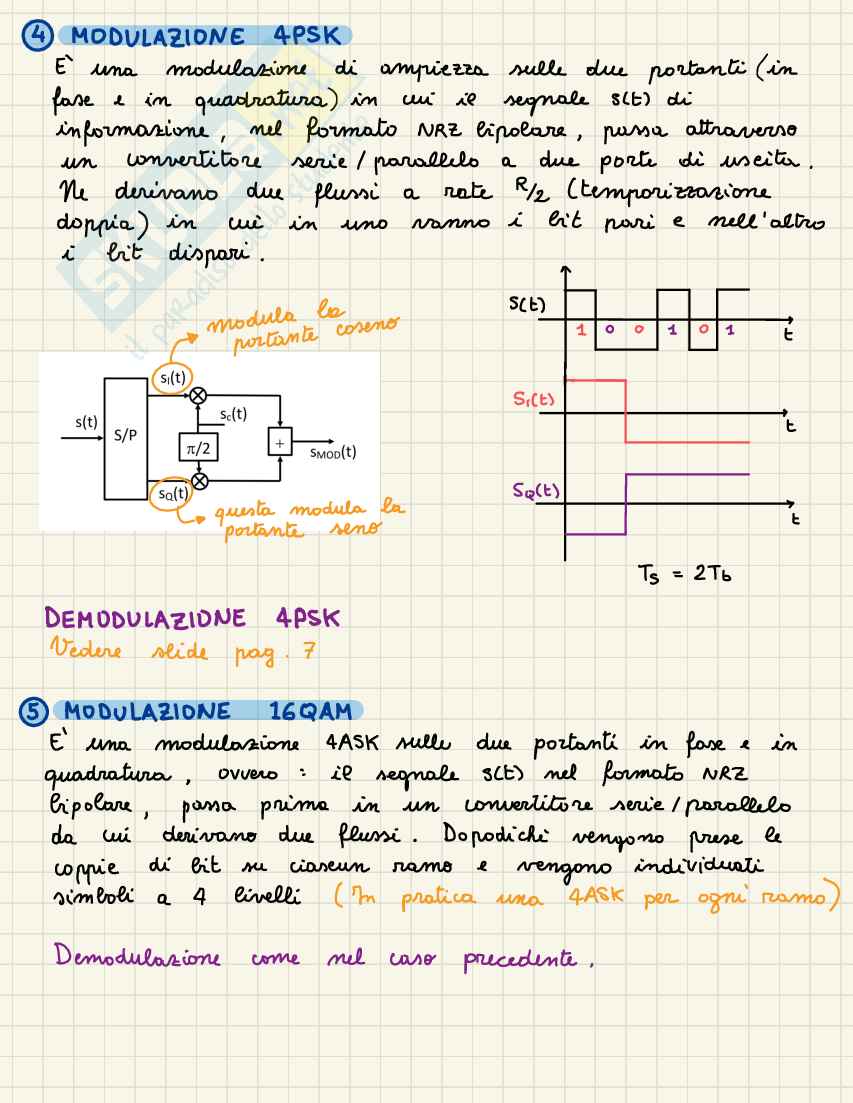 4 MODULAZIONE 4PSK
E' una modulazione di ampiezza sulle due portanti (in
fase e in quadratura) in cui il segnale s(t) di
informazione, nel formato NRZ bipolare, passa attraverso
un convertitore serie/parallelo a due porte di uscita.
Ne derivano due flussi a rate R/2 (temporizzazione
doppia) in cui in uno vanno i bit pari e nell'altro
i bit dispari.
modula la
portante coseno
s(t)
S/P
sI(t)
sc(t)
π/2
+
sMOD(t)
sQ(t)
questa modula la
portante seno
S(t)
1 0 0 1 0 1
t
SI(t)
t
SQ(t)
t
Ts = 2Tb
DEMODULAZIONE 4PSK
Vedere slide pag. 7
5 MODULAZIONE 16QAM
E' una modulazione 4ASK sulle due portanti in fase e in
quadratura, ovvero: il segnale s(t) nel formato NRZ
bipolare, passa prima in un convertitore serie/parallelo
da cui derivano due flussi. Dopodichè vengono prese le
coppie di bit su ciascun ramo e vengono individuati
simboli a 4 livelli (In pratica una 4ASK per ogni ramo)
Demodulazione come nel caso precedente.